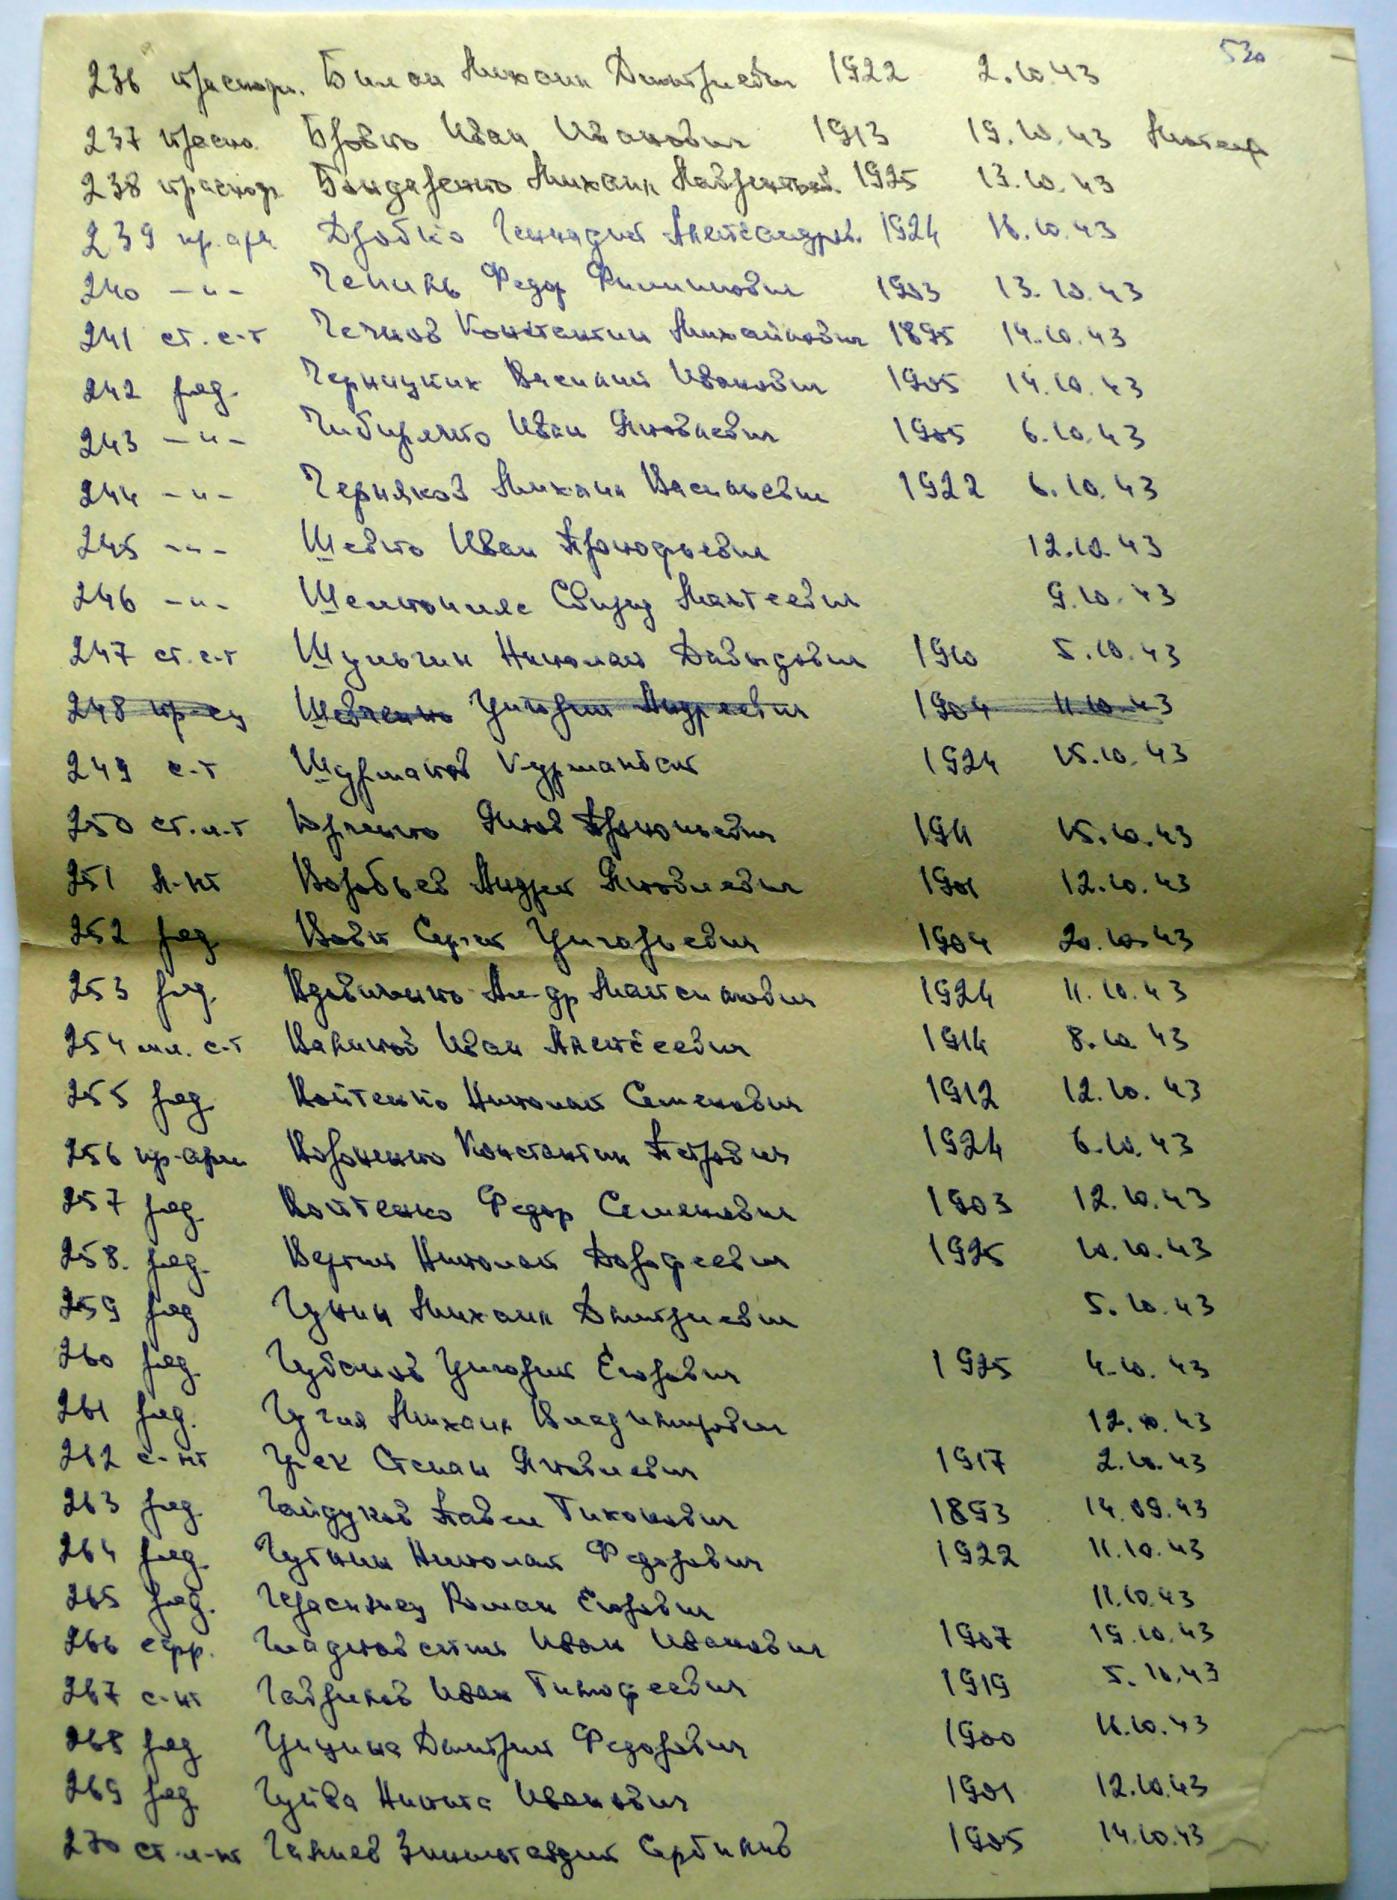 530
236 красноар. Билан Михаил Дмитриевич 1922 2.10.43
237 красно. Бровко Иван Иванович 1913 19.10.43
238 красноар Бондаренко Михаил 1925 13.10.43
239 кр.арм Дробко Геннадий Александров. 1924 16.10.43
240 -"- Чепиль Федор Филиппович 1903 13.10.43
241 ст. с-т Чечнов Константин Михайлович 1895 14.10.43
242 ряд. Василий Иванович 1905 14.10.43
243 -"- Чибирячко Иван Яковлевич 1905 6.10.43
244 -"- Черняков Михаил Васильевич 1922 6.10.43
245 -"- Шевко Иван Прокофьевич 12.10.43
246 -"- Свирид Матвеевич 9.10.43
247 ст. с-т Шульгин Николай Давыдович 1910 5.10.43
248 кр-ец Шевченко Григорий Андреевич 1904 11.10.43
249 с-т Шурманов Курманбай 1924 15.10.43
250 ст.л-т Юрченко Яков Прокопьевич 1911 15.10.43
251 л-нт Воробьев Андрей Яковлевич 1901 12.10.43
252 ряд Вовк Сергей Григорьевич 1904 20.10.43
253 ряд. Вдовиченко Ал-др Максимович 1924 11.10.43
254 мл. с-т Валиков Иван Алексеевич 1914 8.10 43
255 ряд. Войтенко Николай Семенович 1912 12.10.43
256 кр-арм Вороненко Константин Петрович 1924 6.10.43
257 ряд. Войтенко Федор Семенович 1903 12.10.43
258. ряд. Вергий Николай Дорофеевич 1925 10.10.43
259 ряд Гунин Михаил Дмитриевич 5.10.43
260 ряд. Губанов Григорий Егорович 1925 4.10.43
261 ряд. Гугля Михаил Владимирович 12.10.43
262 с-нт Грек Степан Яковлевич 1917 2.10.43
263 ряд. Гайдуков Павел Тихонович 1893 14.09.43
264 ряд. Гуткин Николай Федорович 1922 11.10.43
265 ряд. Герасимец Роман Егорович 11.10.43
266 ефр. Гладковский Иван Иванович 1907 19.10.43
267 с-нт Гаврилов Иван Тимофеевич 1919 5.10.43
268 ряд Грицина Дмитрий Федорович 1900 16.10.43
269 ряд Гуйва Никита Иванович 1901 12.10.43
270 ст.л-нт Галиев 1905 14.10.43